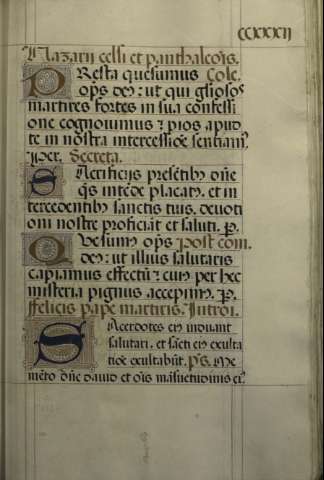 CCXXXII
Nazarii celsi et panthaleōis.
PResta quesumus Colc̄.
op̄s deꝰ: ut qui gl̄iosoˢ
martires fortes in sua confessi
one cognouimus ⁊ pios apud
te in nostra intercessiōe sentiamꝰ.
per. Secreta.
SAcrificijs presētibꝰ dn̄e
q̄s intēde placatꝰ. et in
tercedentibꝰ sanctis tuis. deuoti
oni nostre proficiāt et saluti. p̄.
QVesumꝰ op̄s post com̄.
deꝰ: ut illius salutaris
capiamus effectū ⁊ cuiꝰ per hec
misteria pignus accepimꝰ. P̄.
ffelicis pape martiris. Introi.
SAcerdotes eiꝰ induant
salutari. et sācti eiꝰ exulta
tiōe exultabūt. p̄s. Me
mēto dn̄e dauid et oīs māsuetudinis eiꝰ